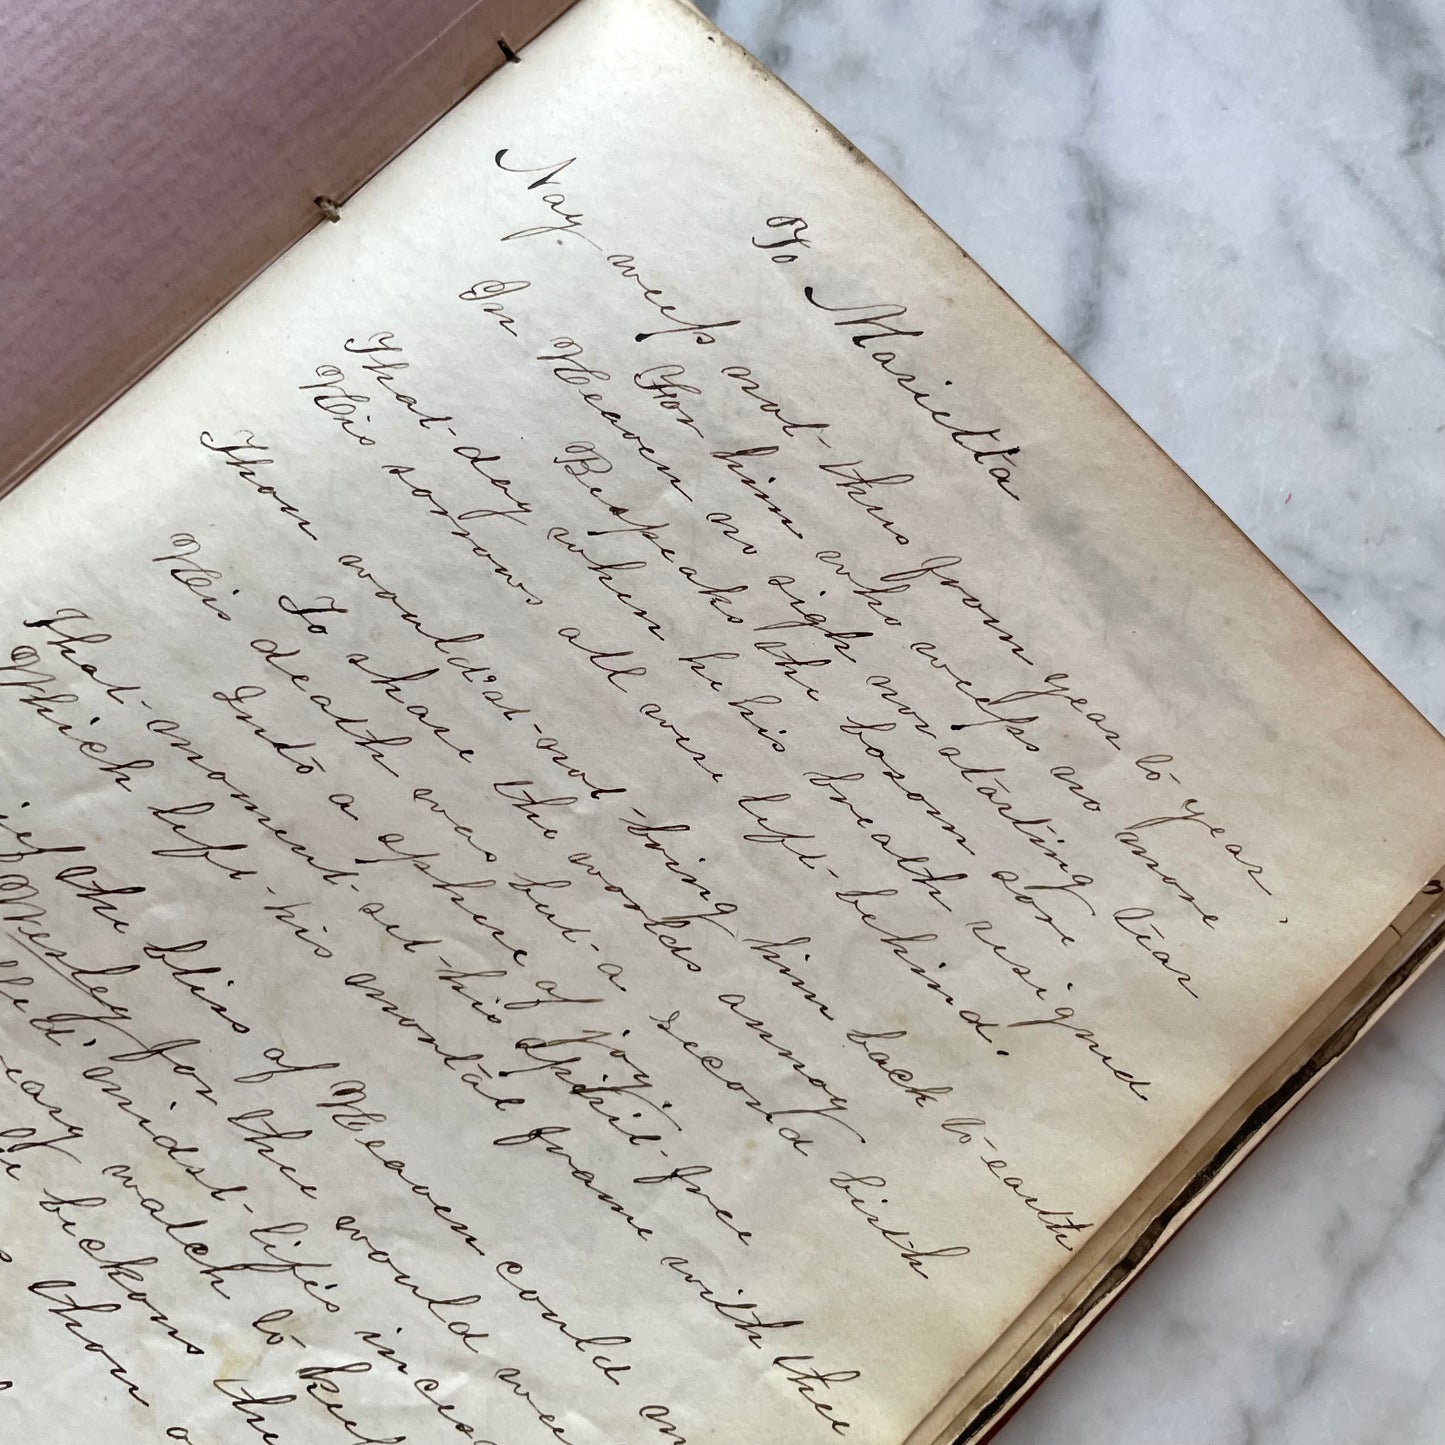 To Marietta
Nay weep not thus from year to year,
For him who weeps no more
In Heaven no sigh nor starting tear
Bespeaks the bosom sore
That day when he his breath resigned
His sorrows all were left behind.
Thou would'st not bring him back to earth
To share the worlds annoy
His death was but a second birth
Into a sphere of joy;
That moment set his spirit free
Which left his mortal frame with thee
the bliss of Heaven could
Mesley for the would
midst life's
watch to
beckons the
thou